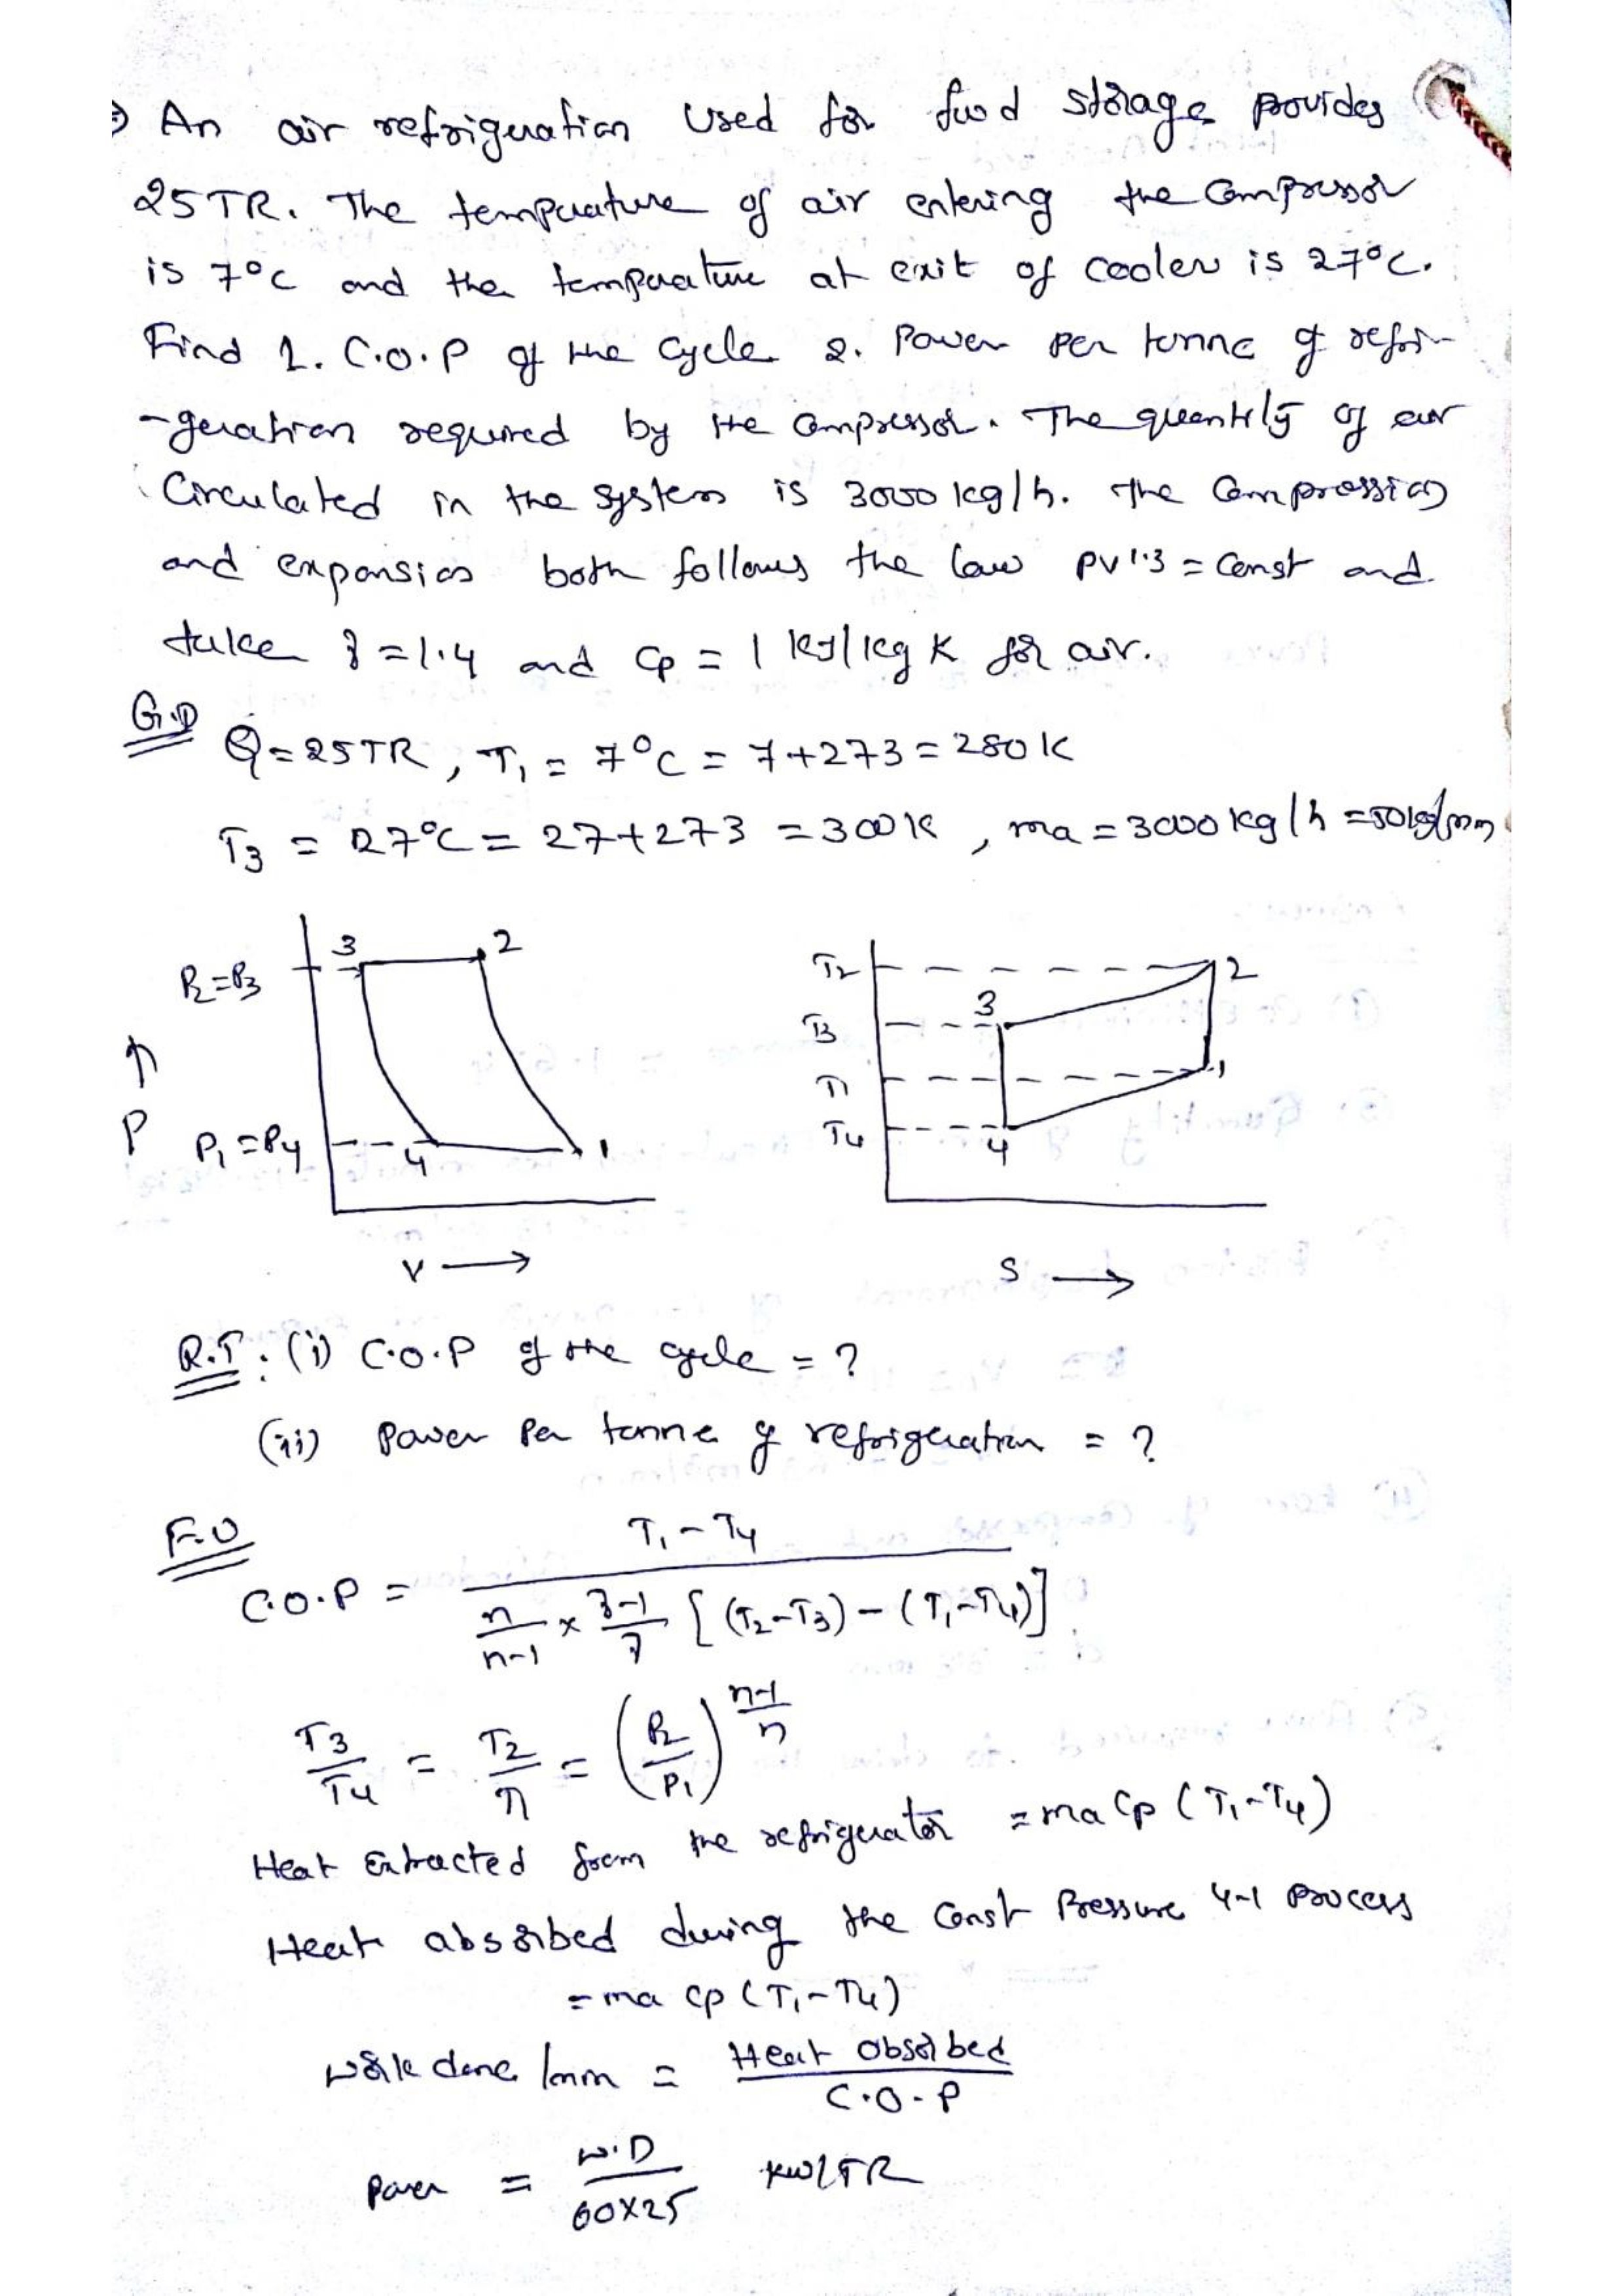 An air refrigeration used for food storage provides
25TR. The temperature of air entering the compressor
is 7°C and the temperature at exit of cooler is 27°C.
Find 1. C.O.P of the cycle 2. Power per tonne of refri-
-geration required by the compressor. The quantity of air
Circulated in the system is 3000 kg/h. The Compression
and expansion both follows the law PV1.3 = Const and
take γ = 1.4 and Cp = 1 kJ/kg K for air.
G.D
Q = 25TR, T1 = 7°C = 7+273 = 280K
T3 = 27°C = 27+273 = 300K, ma = 3000 kg/h = 50kg/min
3 2
P2=P3
↑
P
P1=P4
4 1
V →
T2 2
T3 3
T1 1
T4 4
S →
R.T : (i) C.O.P of the cycle = ?
(ii) Power Per tonne of refrigeration = ?
F.U
C.O.P = T1 - T4 / n/n-1 × γ-1/γ [(T2-T3) - (T1-T4)]
T3/T4 = T2/T1 = (P2/P1)^n-1/n
Heat Extracted from the refrigerator = ma Cp (T1-T4)
Heat absorbed during the Const Pressure 4-1 Process
= ma Cp (T1-T4)
Work done /min = Heat absorbed / C.O.P
Power = W.D / 60×25 KW/TR